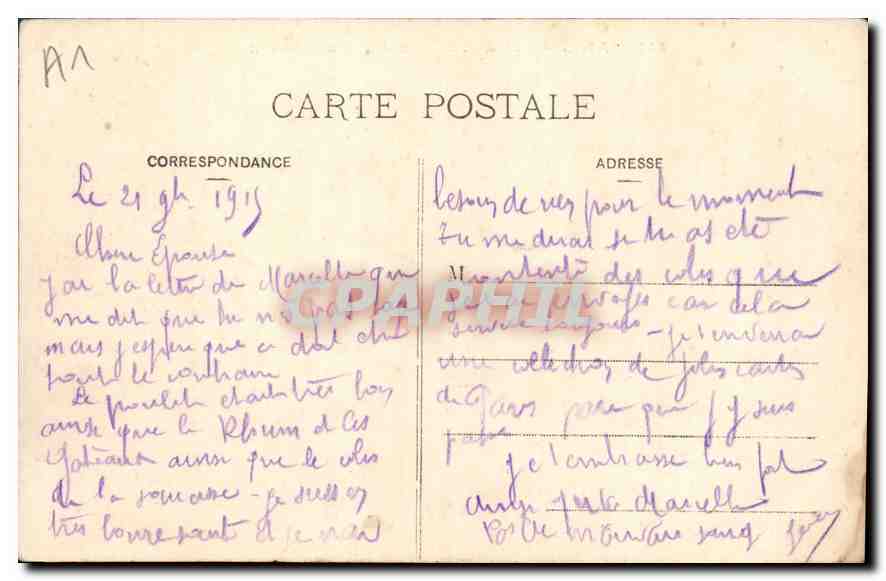 A1
CARTE POSTALE
CORRESPONDANCE
Le 21 9bre 1915
Chère Épouse
J'ai la lettre de Marcelle qui
me dit que tu ne vas pas
mais j'espère que ce doit être
tout le contraire
Le poulet était très bon
ainsi que le Rhum et les
gâteaux ainsi que le colis
de la
très bonne santé et je n'ai
ADRESSE
besoin de rien pour le moment
tu me diras si tu as été
M
contente des colis que
je t'ai envoyés car cela
toujours je t'enverrai
une collection de jolies cartes
de Paris parce que j'y suis
passé
je t'embrasse bien fort
ainsi que la Marcelle
pas de mauvais sang
CPAPHIL